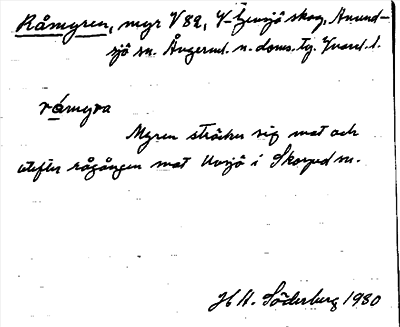 Råmyren, myr V 82, V. Gensjö skog, Anund-
sjö sn. Ångerml. n. doms. tg. Yvard. l.
råmyra
Myren sträcker sig mot och
utefter rågången mot Uvsjö i Skorped sn.
H A. Söderberg 1930